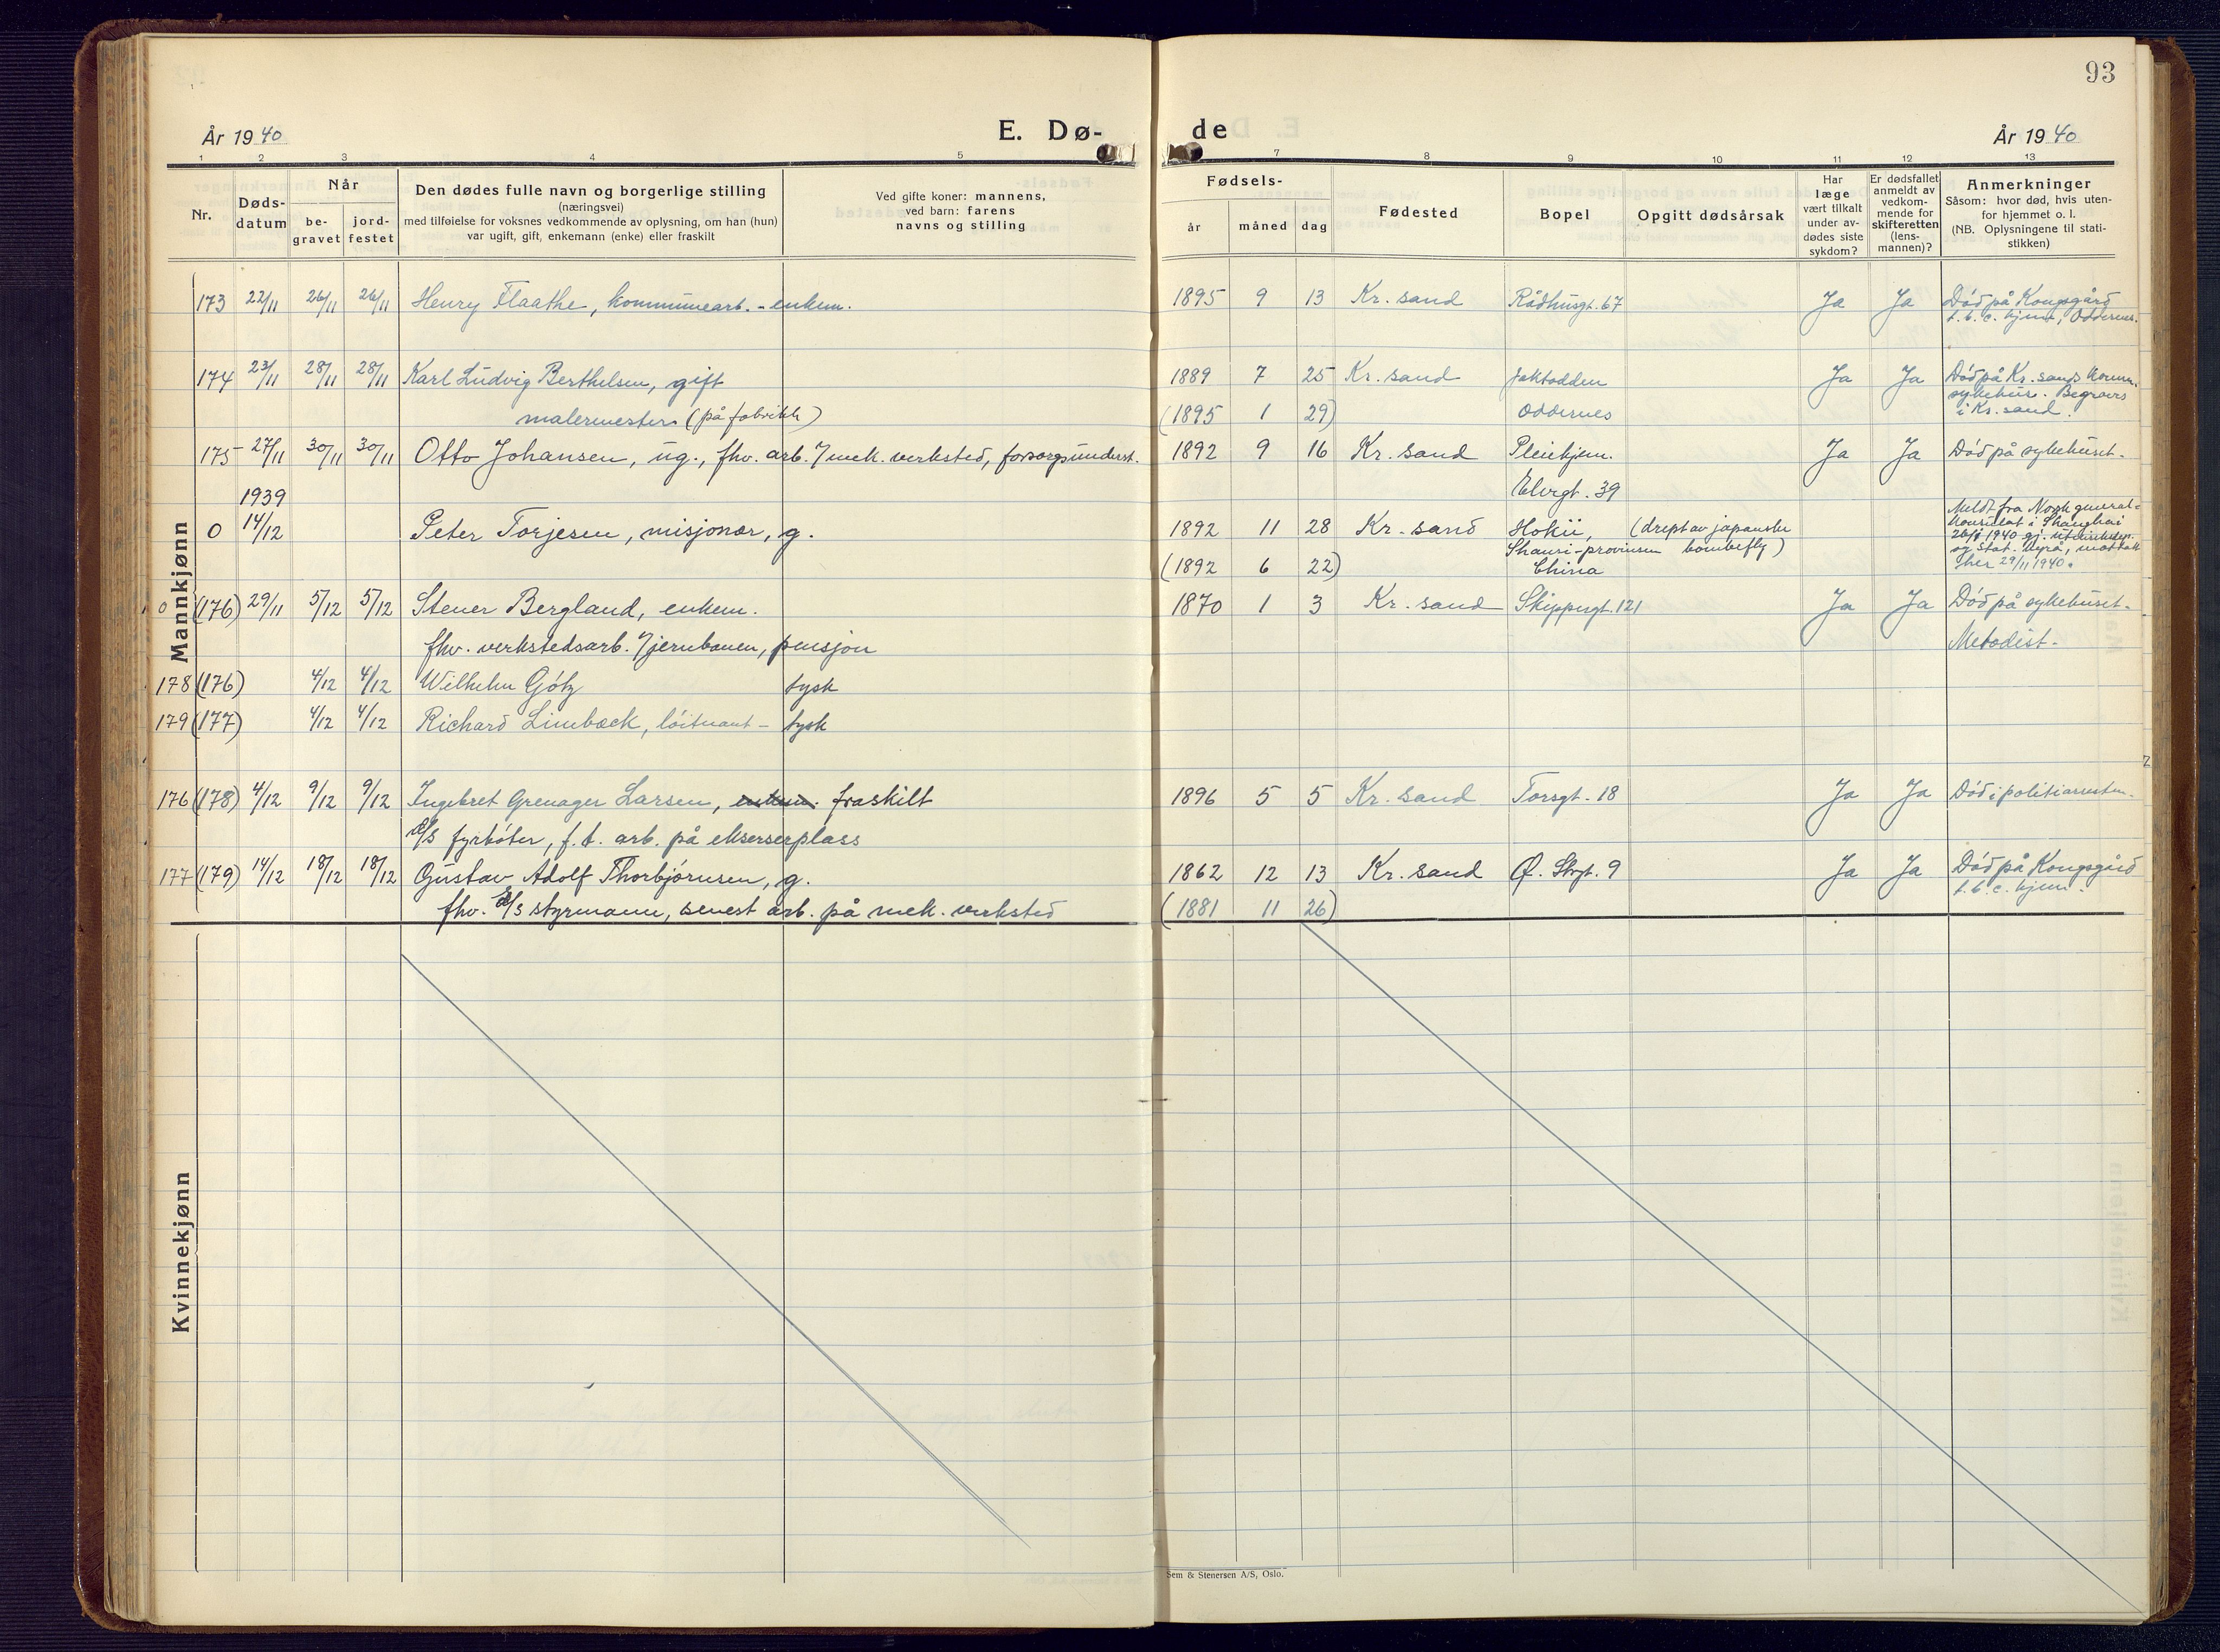 93
År 1940 E. Dø- de År 1940
1 2 3 4 5 7 8 9 10 11 12 13
Nr.
Døds-
datum
Når
be-
gravet
jord-
festet
Den dødes fulle navn og borgerlige stilling
(næringsvei)
med tilføielse for voksnes vedkommende av oplysning, om han (hun)
var ugift, gift, enkemann (enke) eller fraskilt
Ved gifte koner: mannens,
ved barn: farens
navns og stilling
Fødsels-
år måned dag
Fødested
Bopel
Opgitt dødsårsak
Har
læge
vært tilkalt
under av-
dødes siste
sykdom?
Er dødsfallet
anmeldt av
vedkom-
mende for
skifteretten
(lens-
mannen)?
Anmerkninger
Såsom: hvor død, hvis uten-
for hjemmet o. l.
(NB. Oplysningene til stati-
stikken)
Mannkjønn
173 22/11 26/11 26/11 Henry Flaathe, kommunearb. - enkem. 1895 9 13 Kr. sand Rådhusgt. 67 Ja Ja Død på Kongsgård
t.b.c. hjem, Oddernes.
174 23/11 28/11 28/11 Karl Ludvig Berthelsen, gift 1889 7 25 Kr. sand Jaktodden Ja Ja Død på Kr. sands komm.
sykehus. Begraves
malermester (på fabrikk) (1895 1 29) Oddernes i Kr. sand.
175 27/11 30/11 30/11 Otto Johansen, ug., fhv. arb. v/mek. verksted, forsorgsunderst. 1892 9 16 Kr. sand Pleiehjem. Ja Ja Død på sykehuset.
Elvegt. 39
1939
0 14/12 Peter Torjesen, misjonær, g. 1892 11 28 Kr. sand Hokii, (drept av japanske
Shansi-provinsen bombefly)
(1892 6 22) China
Meldt fra Norsk general-
konsulat i Shanghai
1940 gj. utenriksdep.
og Stat. byrå, mottatt
her 29/11 1940.
0 (176) 29/11 5/12 5/12 Stener Bergland, enkem. 1870 1 3 Kr. sand Skippergt. 121 Ja Ja Død på sykehuset.
fhv. verkstedsarb. v/jernbanen, pensjon Metodist.
178 (176) 4/12 4/12 Wilhelm Götz tysk
179 (177) 4/12 4/12 Richard Limbæck, löitnant - tysk
176 (178) 4/12 9/12 9/12 Ingebret Grenager Larsen, enkem. fraskilt 1896 5 5 Kr. sand Torsgt. 18 Ja Ja Død i politiarresten.
d/s fyrbøter, f. t. arb. på ekserserplass
177 (179) 14/12 18/12 18/12 Gustav Adolf Thorbjørnsen, g. 1862 12 13 Kr. sand Ø. Strgt. 9 Ja Ja Død på Kongsgård
t.b.c. hjem.
fhv. d/s styrmann, senest arb. på mek. verksted (1881 11 26)
Kvinnekjønn
Sem & Stenersen A/S, Oslo.